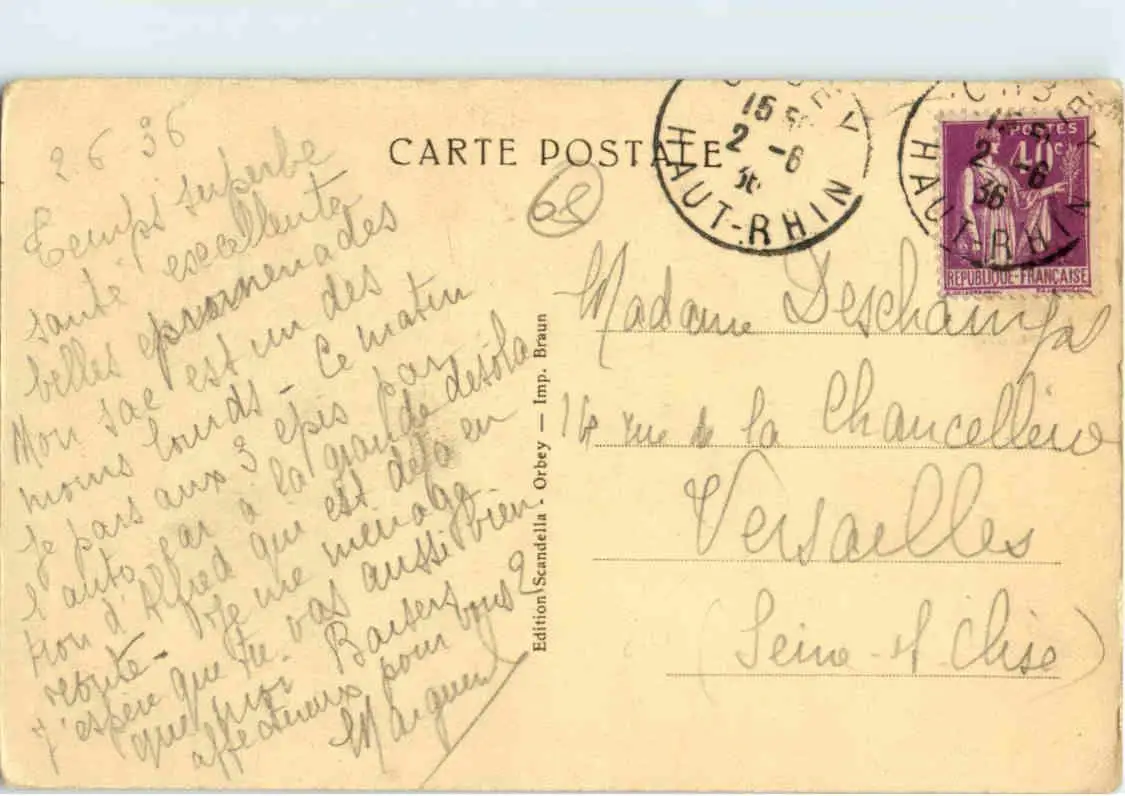 2.6.36
Temps superbe
santé excellente
belles promenades
Mon sac est un des
moins lourds - Ce matin
je pars aux 3 épis par
l'auto, car à la grande désola
tion d'Alfred que est déjà en
route - je me ménage
J'espère que tu vas aussi bien
que moi Baisers
affectueux pour vous 2
CARTE POSTALE
68
15
2 - 6
36
HAUT-RHIN
15
2 - 6
36
HAUT-RHIN
POSTES
40c
REPUBLIQUE-FRANÇAISE
Edition Scandella - Orbey — Imp. Braun
Madame Deschamps
14 rue de la Chancellerie
Versailles
(Seine et Oise)